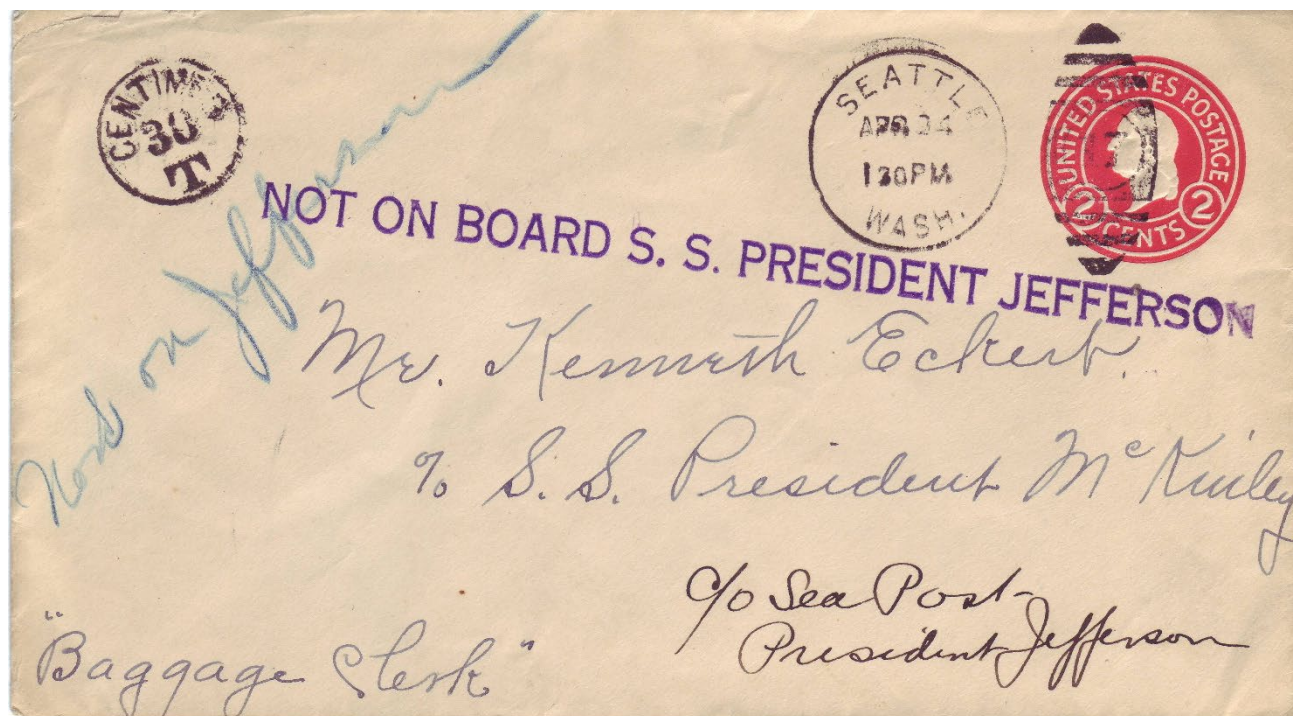 CENTIMES
30
T
SEATTLE
APR 24
1 30 PM
WASH.
UNITED STATES POSTAGE
2 CENTS 2
Not on Jefferson
NOT ON BOARD S. S. PRESIDENT JEFFERSON
Mr. Kenneth Eckert.
c/o S. S. President McKinley
c/o Sea Post-
President Jefferson
"Baggage Clerk"